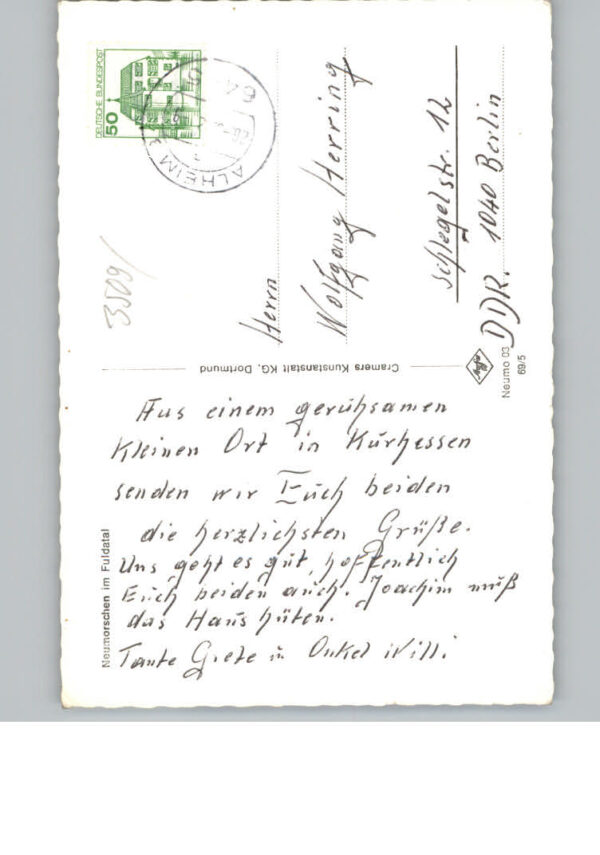 Aus einem geruhsamen
kleinen Ort in Kurhessen
senden wir Euch beiden
die herzlichsten Grüße.
Uns geht es gut, hoffentlich
Euch beiden auch. Joachim muß
das Haus hüten.
Tante Grete u Onkel Willi.
Neumorschen im Fuldatal
Cramers Kunstanstalt KG, Dortmund
Neumo 03
69/5
DEUTSCHE BUNDESPOST
50
ALHEIM
3509/
Herrn
Wolfgang Herring
Schlegelstr. 12
DDR. 1040 Berlin